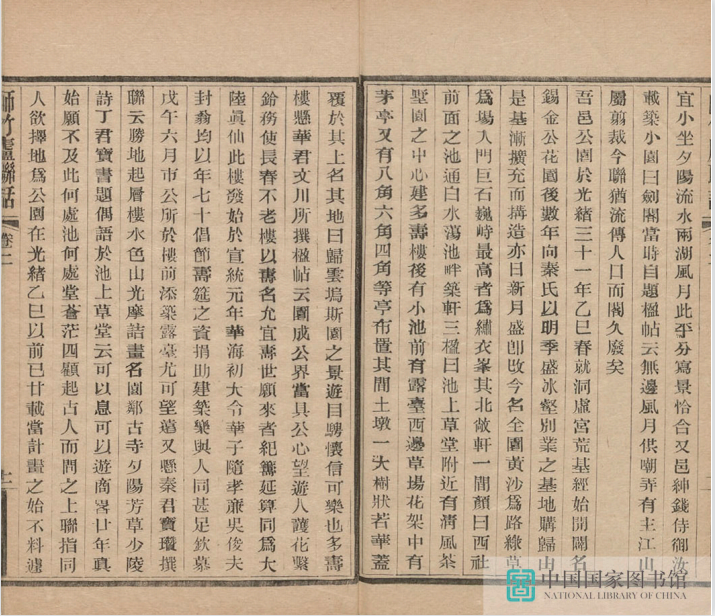 宜小坐夕陽流水兩湖風月此平分寫景恰合又邑紳錢侍御汝
載築小園曰劍閣當時自題楹帖云無邊風月供嘲弄有主江山
屬剪裁今聯猶流傳人口而閣久廢矣
吾邑公園於光緒三十一年乙巳春就洞虛宮荒基經始開闢名
錫金公花園後數年向秦氏以明季盛冰壑別業之基地購歸山
是基漸擴充而搆造亦日新月盛卽改今名全園黃沙爲路綠草
爲場入門巨石巍峙最高者爲繡衣峯其北敞軒一間顏曰西社
前面之池通白水蕩池畔築軒三楹曰池上草堂附近有淸風茶
墅園之中心建多壽樓後有小池前有露臺西邊草場花架中有
茅亭又有八角六角四角等亭布置其間土墩一大樹狀若華蓋
覆於其上名其地曰歸雲塢斯園之景遊目騁懷信可樂也多壽
樓懸華君文川所撰楹帖云園成公界當具公心望遊人護花繫
鈴務使長春不老樓以壽名允宜壽世願來者紀籌延算同爲大
陸眞仙此樓發始於宣統元年華海初大令華子隨孝廉吳俊夫
封翁均以年七十倡節壽筵之資捐助建築樂與人同甚足欽慕
戊午六月市公所於樓前添築露臺尤可望遠又懸秦君寶瓚撰
聯云勝地起層樓水色山光摩詰畫名園鄰古寺夕陽芳草少陵
詩丁君寶書題偶語於池上草堂云可以息可以遊商畧廿年眞
始願不及此何處池何處堂蒼茫四顧起古人而問之上聯指同
人欲擇地爲公園在光緒乙巳以前已廿載當計畫之始不料遽
師竹廬聯話 卷二
中国国家图书馆
NATIONAL LIBRARY OF CHINA